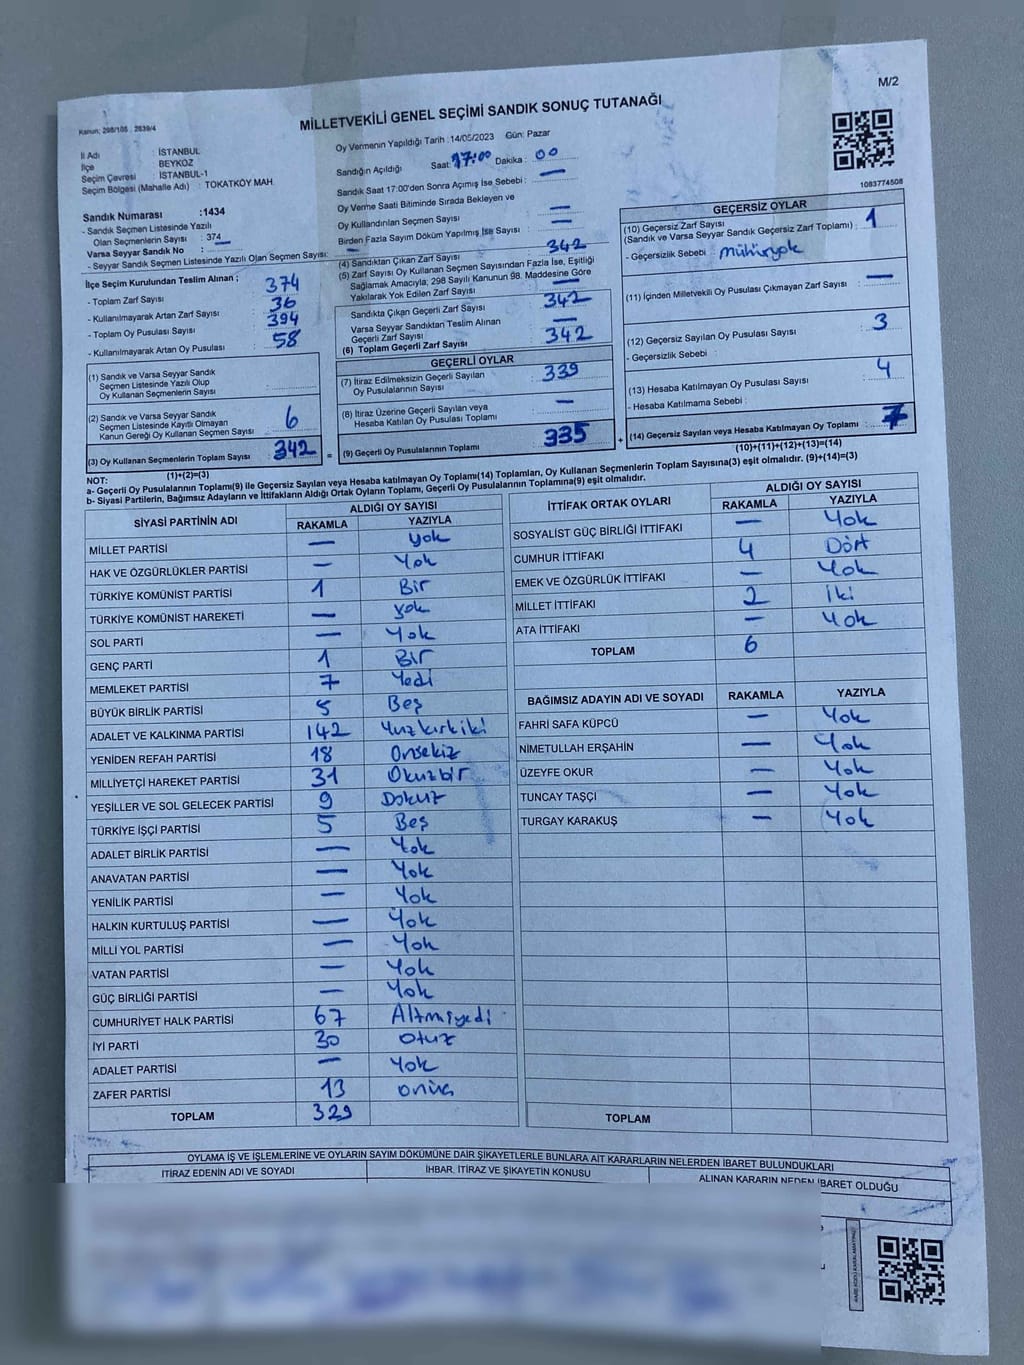 M/2
Kanun: 298/105 , 2839/4
MİLLETVEKİLİ GENEL SEÇİMİ SANDIK SONUÇ TUTANAĞI
İl Adı : İSTANBUL
İlçe : BEYKOZ
Seçim Çevresi : İSTANBUL-1
Seçim Bölgesi (Mahalle Adı) : TOKATKÖY MAH.
Sandık Numarası :1434
- Sandık Seçmen Listesinde Yazılı
Olan Seçmenlerin Sayısı : 374
Varsa Seyyar Sandık No : —
- Seyyar Sandık Seçmen Listesinde Yazılı Olan Seçmen Sayısı: —
İlçe Seçim Kurulundan Teslim Alınan ;
- Toplam Zarf Sayısı 374
- Kullanılmayarak Artan Zarf Sayısı 36
- Toplam Oy Pusulası Sayısı 394
- Kullanılmayarak Artan Oy Pusulası 58
(1) Sandık ve Varsa Seyyar Sandık
Seçmen Listesinde Yazılı Olup
Oy Kullanan Seçmenlerin Sayısı :
(2) Sandık ve Varsa Seyyar Sandık
Seçmen Listesinde Kayıtlı Olmayan
Kanun Gereği Oy Kullanan Seçmen Sayısı : 6
(3) Oy Kullanan Seçmenlerin Toplam Sayısı : 342
(1)+(2)=(3)
Oy Vermenin Yapıldığı Tarih : 14/05/2023 Gün: Pazar
Sandığın Açıldığı Saat: 17:00 Dakika : 00
Sandık Saat 17:00'den Sonra Açımış İse Sebebi : —
Oy Verme Saati Bitiminde Sırada Bekleyen ve
Oy Kullandırılan Seçmen Sayısı —
Birden Fazla Sayım Döküm Yapılmış İse Sayısı : —
(4) Sandıktan Çıkan Zarf Sayısı 342
(5) Zarf Sayısı Oy Kullanan Seçmen Sayısından Fazla İse, Eşitliği
Sağlamak Amacıyla; 298 Sayılı Kanunun 98. Maddesine Göre
Yakılarak Yok Edilen Zarf Sayısı —
Sandıkta Çıkan Geçerli Zarf Sayısı 342
Varsa Seyyar Sandıktan Teslim Alınan
Geçerli Zarf Sayısı —
(6) Toplam Geçerli Zarf Sayısı 342
=
GEÇERLİ OYLAR
(7) İtiraz Edilmeksizin Geçerli Sayılan
Oy Pusulalarının Sayısı : 339
(8) İtiraz Üzerine Geçerli Sayılan veya
Hesaba Katılan Oy Pusulası Toplamı : —
(9) Geçerli Oy Pusulalarının Toplamı : 335
+
1083774508
GEÇERSİZ OYLAR
(10) Geçersiz Zarf Sayısı
(Sandık ve Varsa Seyyar Sandık Geçersiz Zarf Toplamı) : 1
- Geçersizlik Sebebi : mühüryok
(11) İçinden Milletvekili Oy Pusulası Çıkmayan Zarf Sayısı : —
(12) Geçersiz Sayılan Oy Pusulası Sayısı : 3
- Geçersizlik Sebebi :
(13) Hesaba Katılmayan Oy Pusulası Sayısı : 4
- Hesaba Katılmama Sebebi :
(14) Geçersiz Sayılan veya Hesaba Katılmayan Oy Toplamı : 7
(10)+(11)+(12)+(13)=(14)
NOT:
a- Geçerli Oy Pusulalarının Toplamı(9) ile Geçersiz Sayılan veya Hesaba katılmayan Oy Toplamı(14) Toplamları, Oy Kullanan Seçmenlerin Toplam Sayısına(3) eşit olmalıdır. (9)+(14)=(3)
b- Siyasi Partilerin, Bağımsız Adayların ve İttifakların Aldığı Ortak Oyların Toplamı, Geçerli Oy Pusulalarının Toplamına(9) eşit olmalıdır.
SİYASİ PARTİNİN ADI ALDIĞI OY SAYISI
RAKAMLA YAZIYLA
MİLLET PARTİSİ — yok
HAK VE ÖZGÜRLÜKLER PARTİSİ — Yok
TÜRKİYE KOMÜNİST PARTİSİ 1 Bir
TÜRKİYE KOMÜNİST HAREKETİ — yok
SOL PARTİ — Yok
GENÇ PARTİ 1 Bir
MEMLEKET PARTİSİ 7 Yedi
BÜYÜK BİRLİK PARTİSİ 5 Beş
ADALET VE KALKINMA PARTİSİ 142 Yuzkırkiki
YENİDEN REFAH PARTİSİ 18 Onsekiz
MİLLİYETÇİ HAREKET PARTİSİ 31 Okuzbir
YEŞİLLER VE SOL GELECEK PARTİSİ 9 Dokuz
TÜRKİYE İŞÇİ PARTİSİ 5 Beş
ADALET BİRLİK PARTİSİ — Yok
ANAVATAN PARTİSİ — Yok
YENİLİK PARTİSİ — Yok
HALKIN KURTULUŞ PARTİSİ — Yok
MİLLİ YOL PARTİSİ — Yok
VATAN PARTİSİ — Yok
GÜÇ BİRLİĞİ PARTİSİ — Yok
CUMHURİYET HALK PARTİSİ 67 Altmıyedi
İYİ PARTİ 30 otuz
ADALET PARTİSİ — Yok
ZAFER PARTİSİ 13 onüç
TOPLAM 329
İTTİFAK ORTAK OYLARI ALDIĞI OY SAYISI
RAKAMLA YAZIYLA
SOSYALİST GÜÇ BİRLİĞİ İTTİFAKI — Yok
CUMHUR İTTİFAKI 4 Dört
EMEK VE ÖZGÜRLÜK İTTİFAKI — Yok
MİLLET İTTİFAKI 2 İki
ATA İTTİFAKI — Yok
TOPLAM 6
BAĞIMSIZ ADAYIN ADI VE SOYADI RAKAMLA YAZIYLA
FAHRİ SAFA KÜPCÜ — Yok
NİMETULLAH ERŞAHİN — Yok
ÜZEYFE OKUR — Yok
TUNCAY TAŞÇI — Yok
TURGAY KARAKUŞ — Yok
TOPLAM
OYLAMA İŞ VE İŞLEMLERİNE VE OYLARIN SAYIM DÖKÜMÜNE DAİR ŞİKAYETLERLE BUNLARA AİT KARARLARIN NELERDEN İBARET BULUNDUKLARI
İTİRAZ EDENİN ADI VE SOYADI İHBAR, İTİRAZ VE ŞİKAYETİN KONUSU ALINAN KARARIN NEDEN İBARET OLDUĞU